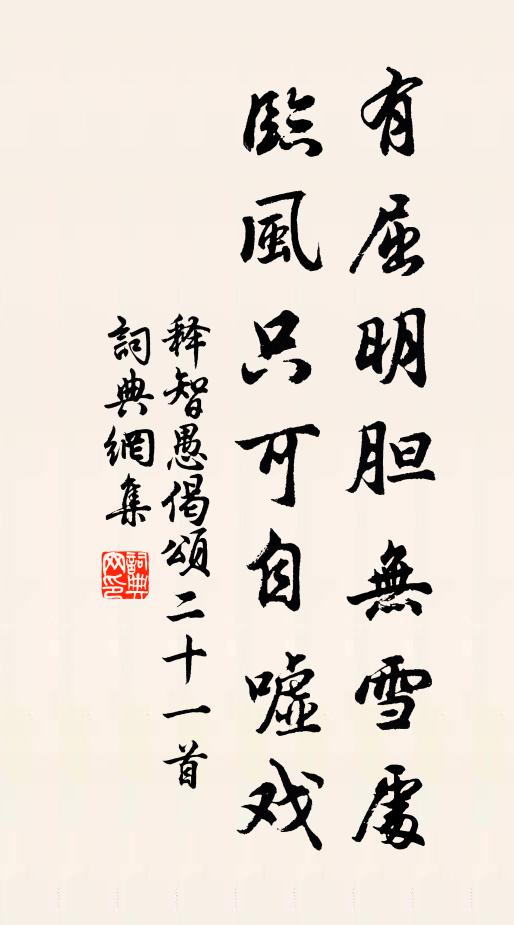 有屈明胆無雪處
臨風只可自噓戏
释智愚偈頌二十一首
詞典網集
詞典網印